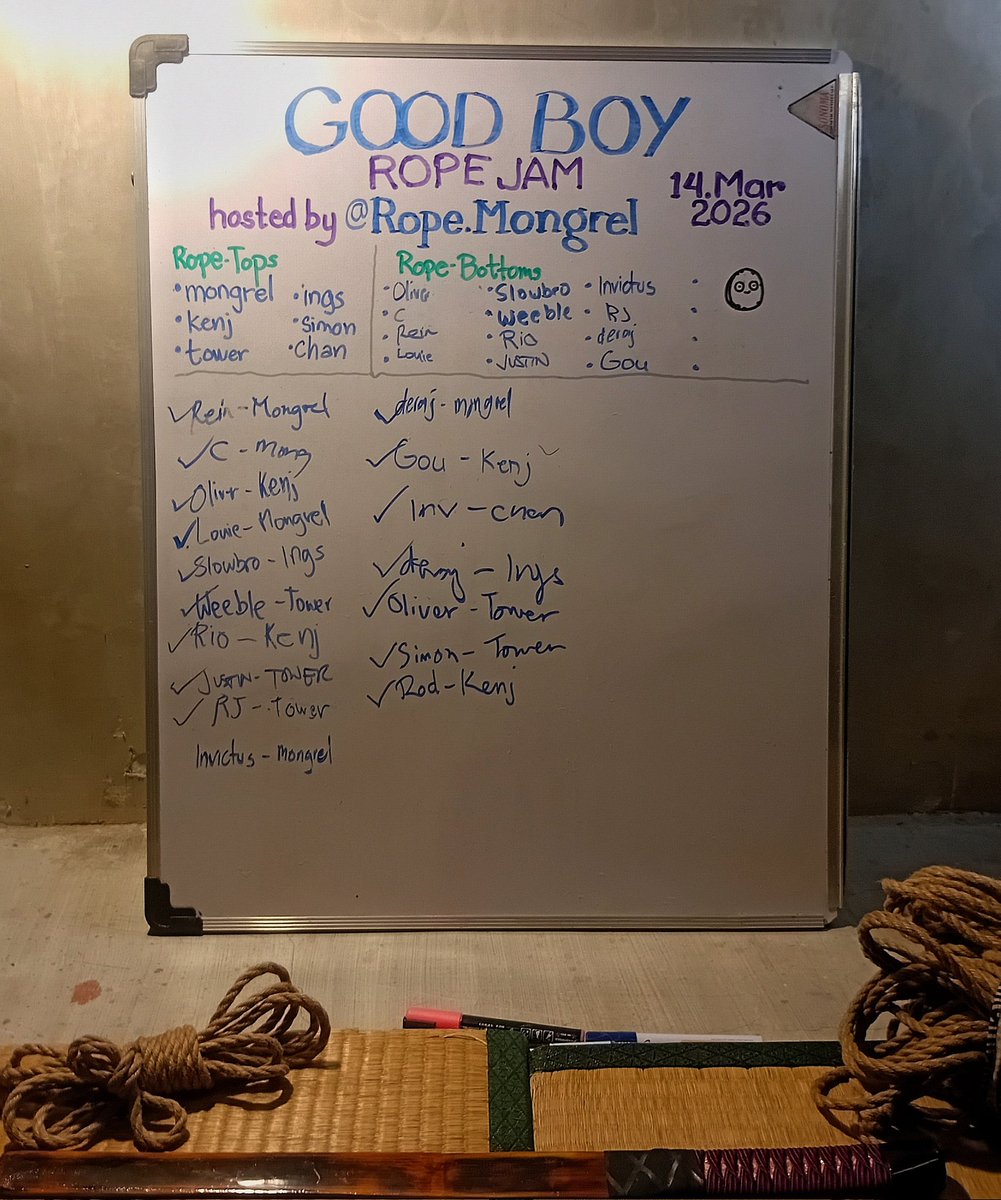 GOOD BOY
ROPE JAM
14.Mar
2026
hosted by @Rope.Mongrel
Rope-Tops
•mongrel
•kenj
•tower
•ings
•simon
•chan
Rope-Bottoms
•Oliver
•C
•Rein
•Louie
•Slowbro
•Weeble
•Rio
•JUSTIN
•Invictus
•RJ
•deraj
•Gou
•
•
•
•
✓Rein-Mongrel
✓C - Mong
✓Olivr - Kenj
✓Louie-Mongrel
✓Slowbro - Ings
✓Weeble -Tower
✓Rio - Kenj
✓JUSTIN-TOWER
✓RJ - Tower
Invictus - mongrel
✓deraj - mongrel
✓Gou - Kenj ✓
✓Inv - chan
✓deraj - Ings
✓Oliver - Tower
✓Simon - Tower
✓Rod - Kenj